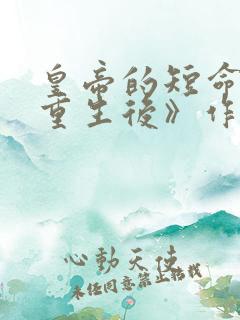 皇帝的短命
重生後》作
心動天使
未经同意禁止转载